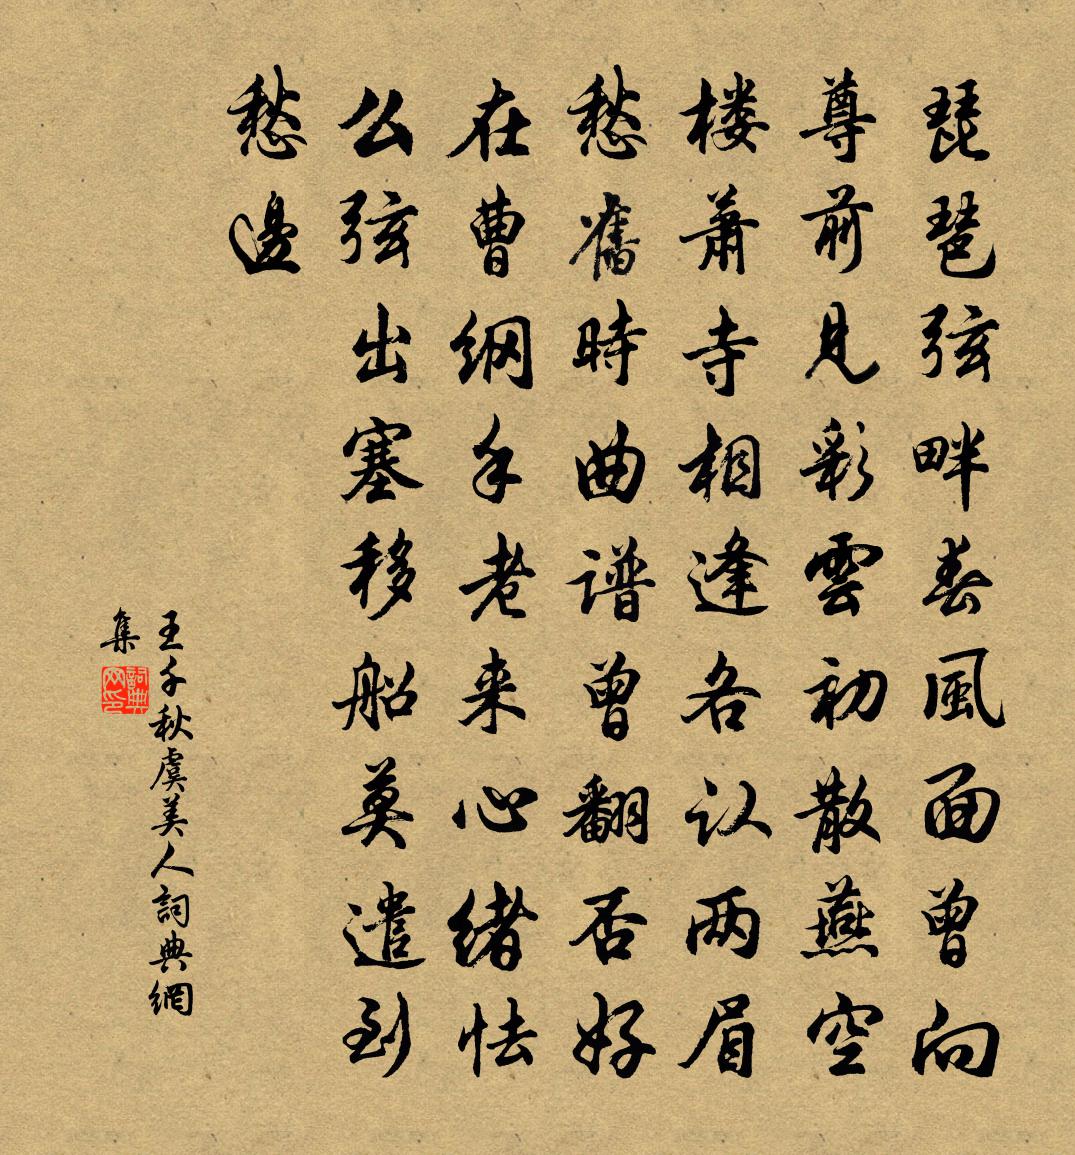 琵琶弦畔春風面曾向
尊前見彩雲初散燕空
楼蕭寺相逢各认两眉
愁舊時曲谱曾翻否好
在曹纲手老来心绪怯
么弦出塞移船莫遣到
愁邊
王千秋虞美人詞典網
集
詞典
网印